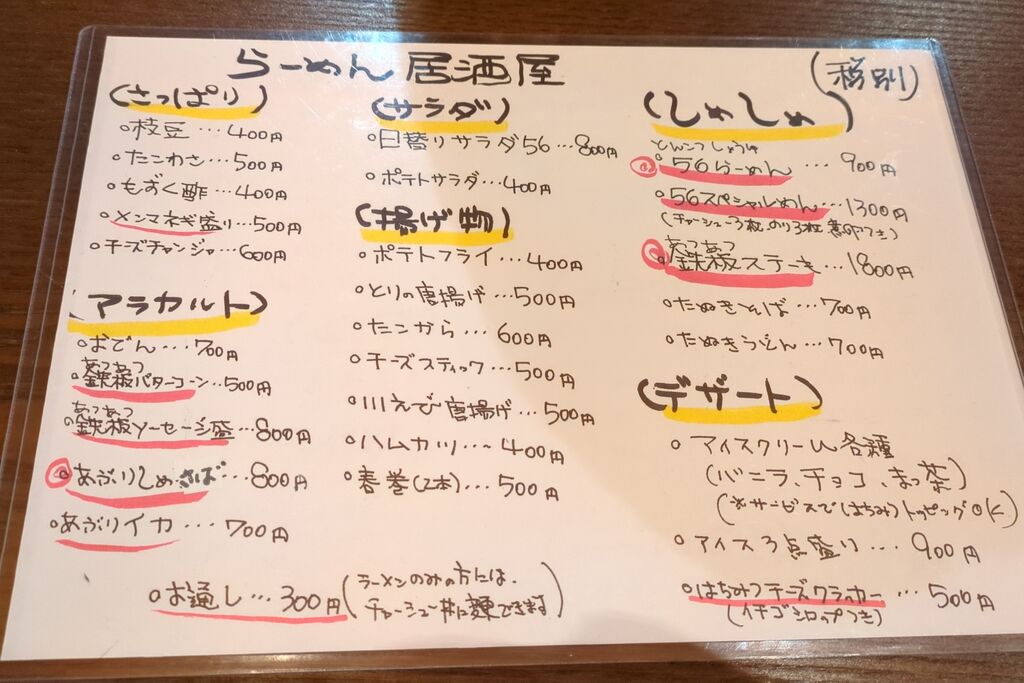 らーめん 居酒屋
(税別)
(さっぱり)
枝豆…400円
たこわさ…500円
もずく酢…400円
メンマネギ盛り…500円
チーズチャンジャ…600円
(アラカルト)
おでん…700円
あつあつ
鉄板バターコーン…500円
あつあつ
鉄板ソーセージ盛…800円
あぶりしめさば…800円
あぶりイカ…700円
(サラダ)
日替りサラダ56…800円
ポテトサラダ…400円
(揚げ物)
ポテトフライ…400円
とりの唐揚げ…500円
たこから…600円
チーズスティック…500円
川えび唐揚げ…500円
ハムカツ…400円
春巻(2本)…500円
(しめしめ)
とんこつしょうゆ
56らーめん…900円
56スペシャルめん…1300円
(チャーシュー3枚、のり3枚 煮卵つき)
あつあつ
鉄板ステーキ…1800円
たぬきそば…700円
たぬきうどん…700円
(デザート)
アイスクリーム各種
(バニラ、チョコ、まっ茶)
(※サービスではちみつトッピングOK)
アイス3点盛り…900円
はちみつチーズクラッカー…500円
(イチゴシロップつき)
お通し…300円
(ラーメンのみの方には、
チャーシュー丼に変できます)